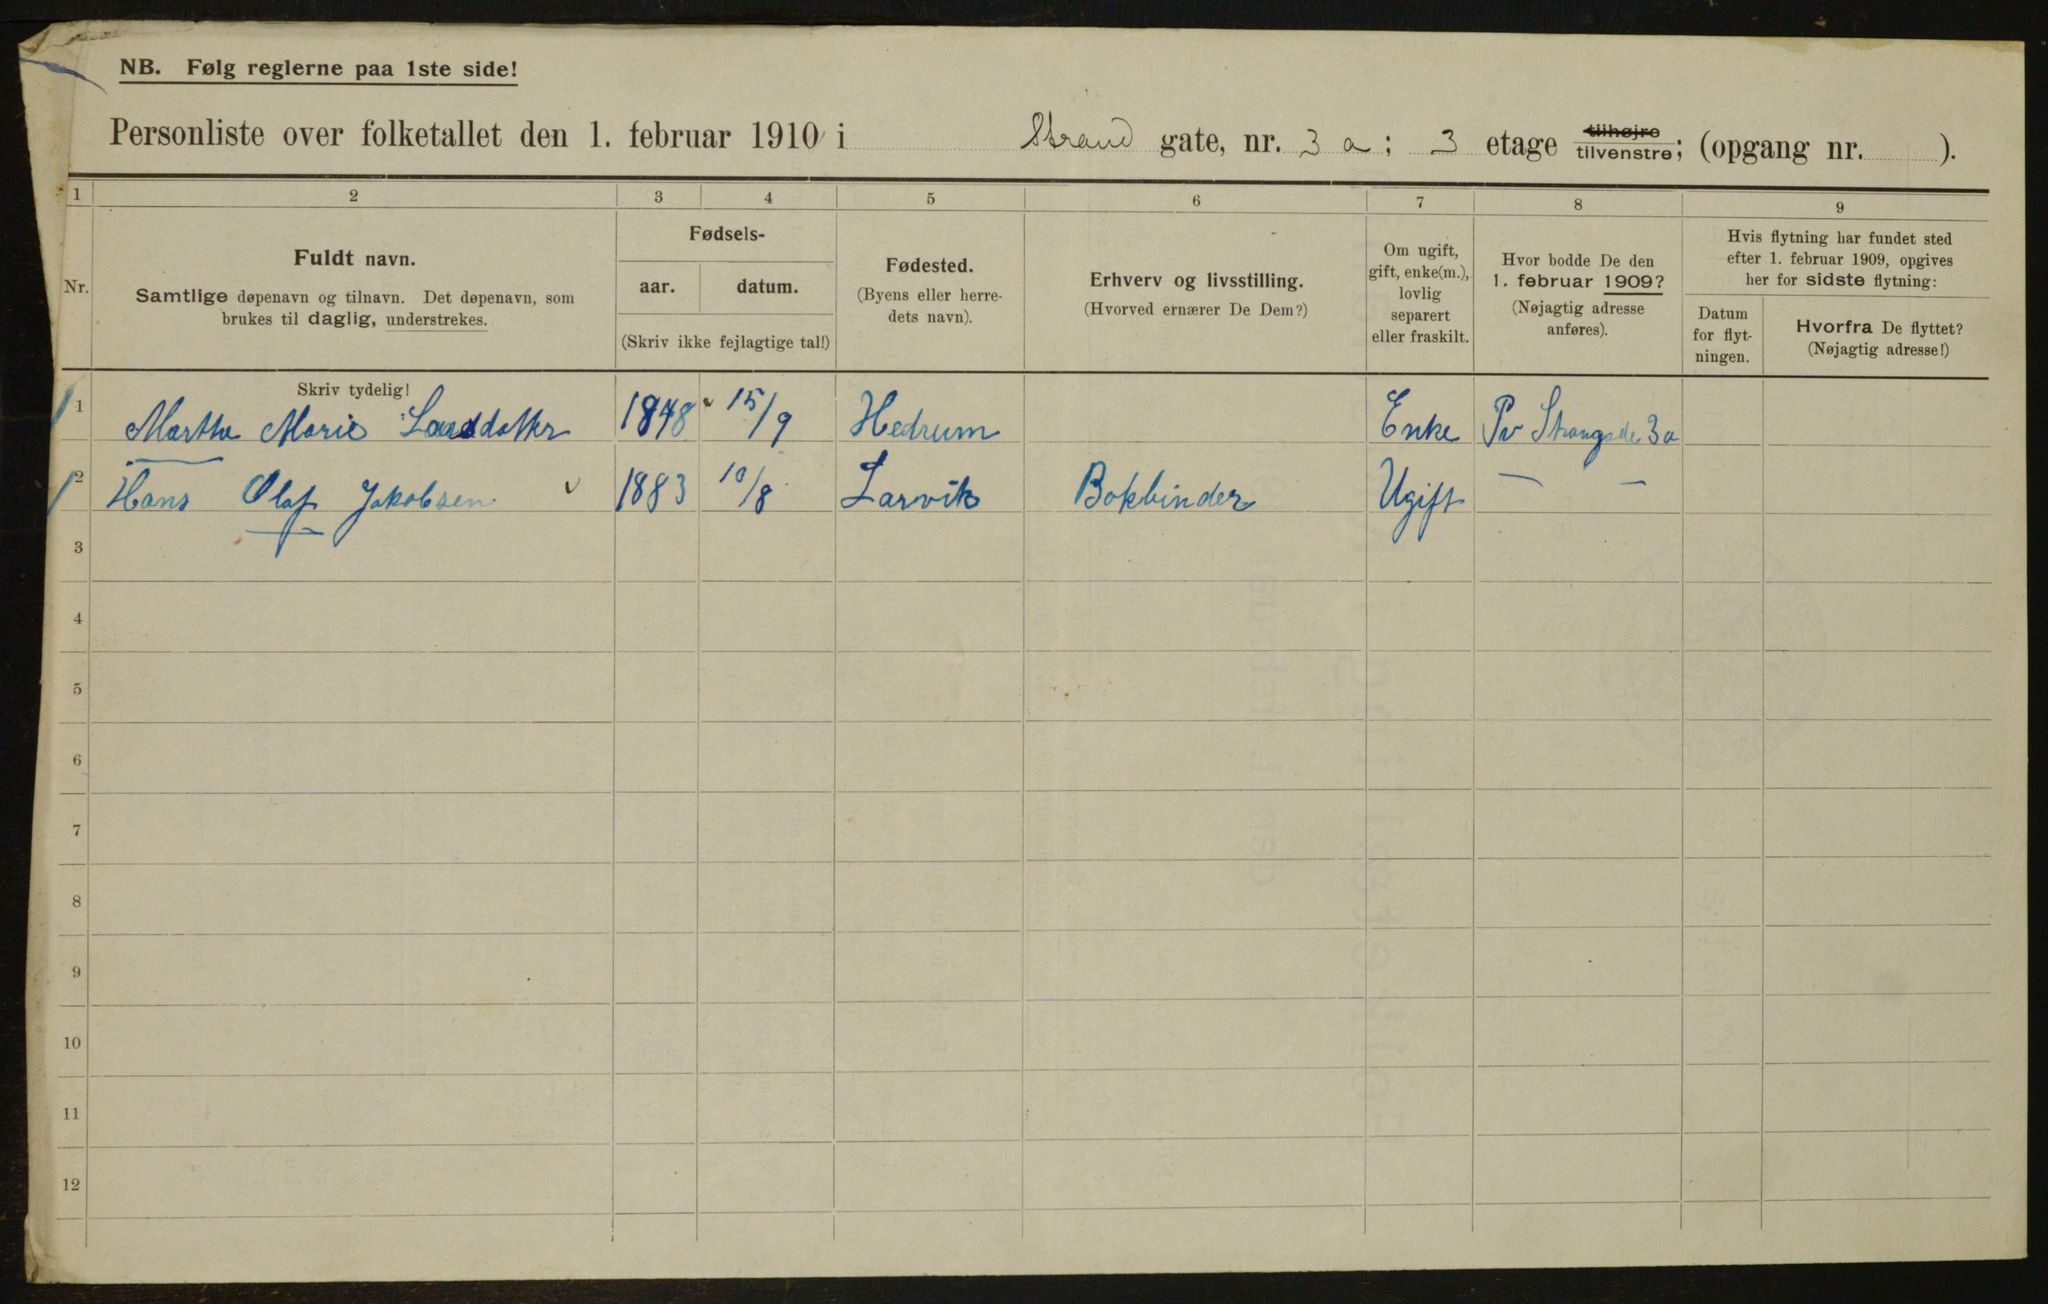 NB. Følg reglerne paa 1ste side!
Personliste over folketallet den 1. februar 1910 i Strand gate, nr. 3 a; 3 etage tilhøjre tilvenstre; (opgang nr. ).
1 2 3 4 5 6 7 8 9
Nr.
Fuldt navn.
Samtlige døpenavn og tilnavn. Det døpenavn, som
brukes til daglig, understrekes.
Fødsels-
aar. datum.
(Skriv ikke fejlagtige tal!)
Fødested.
(Byens eller herre-
dets navn).
Erhverv og livsstilling.
(Hvorved ernærer De Dem?)
Om ugift,
gift, enke(m.),
lovlig
separert
eller fraskilt.
Hvor bodde De den
1. februar 1909?
(Nøjagtig adresse
anføres).
Hvis flytning har fundet sted
efter 1. februar 1909, opgives
her for sidste flytning:
Datum
for flyt-
ningen.
Hvorfra De flyttet?
(Nøjagtig adresse!)
Skriv tydelig!
1 Marthe Marie 1848 15/9 Hedrum Enke 3a
2 Hans Olaf Jakobsen 1883 10/8 Larvik Bokbinder Ugift — —
3
4
5
6
7
8
9
10
11
12